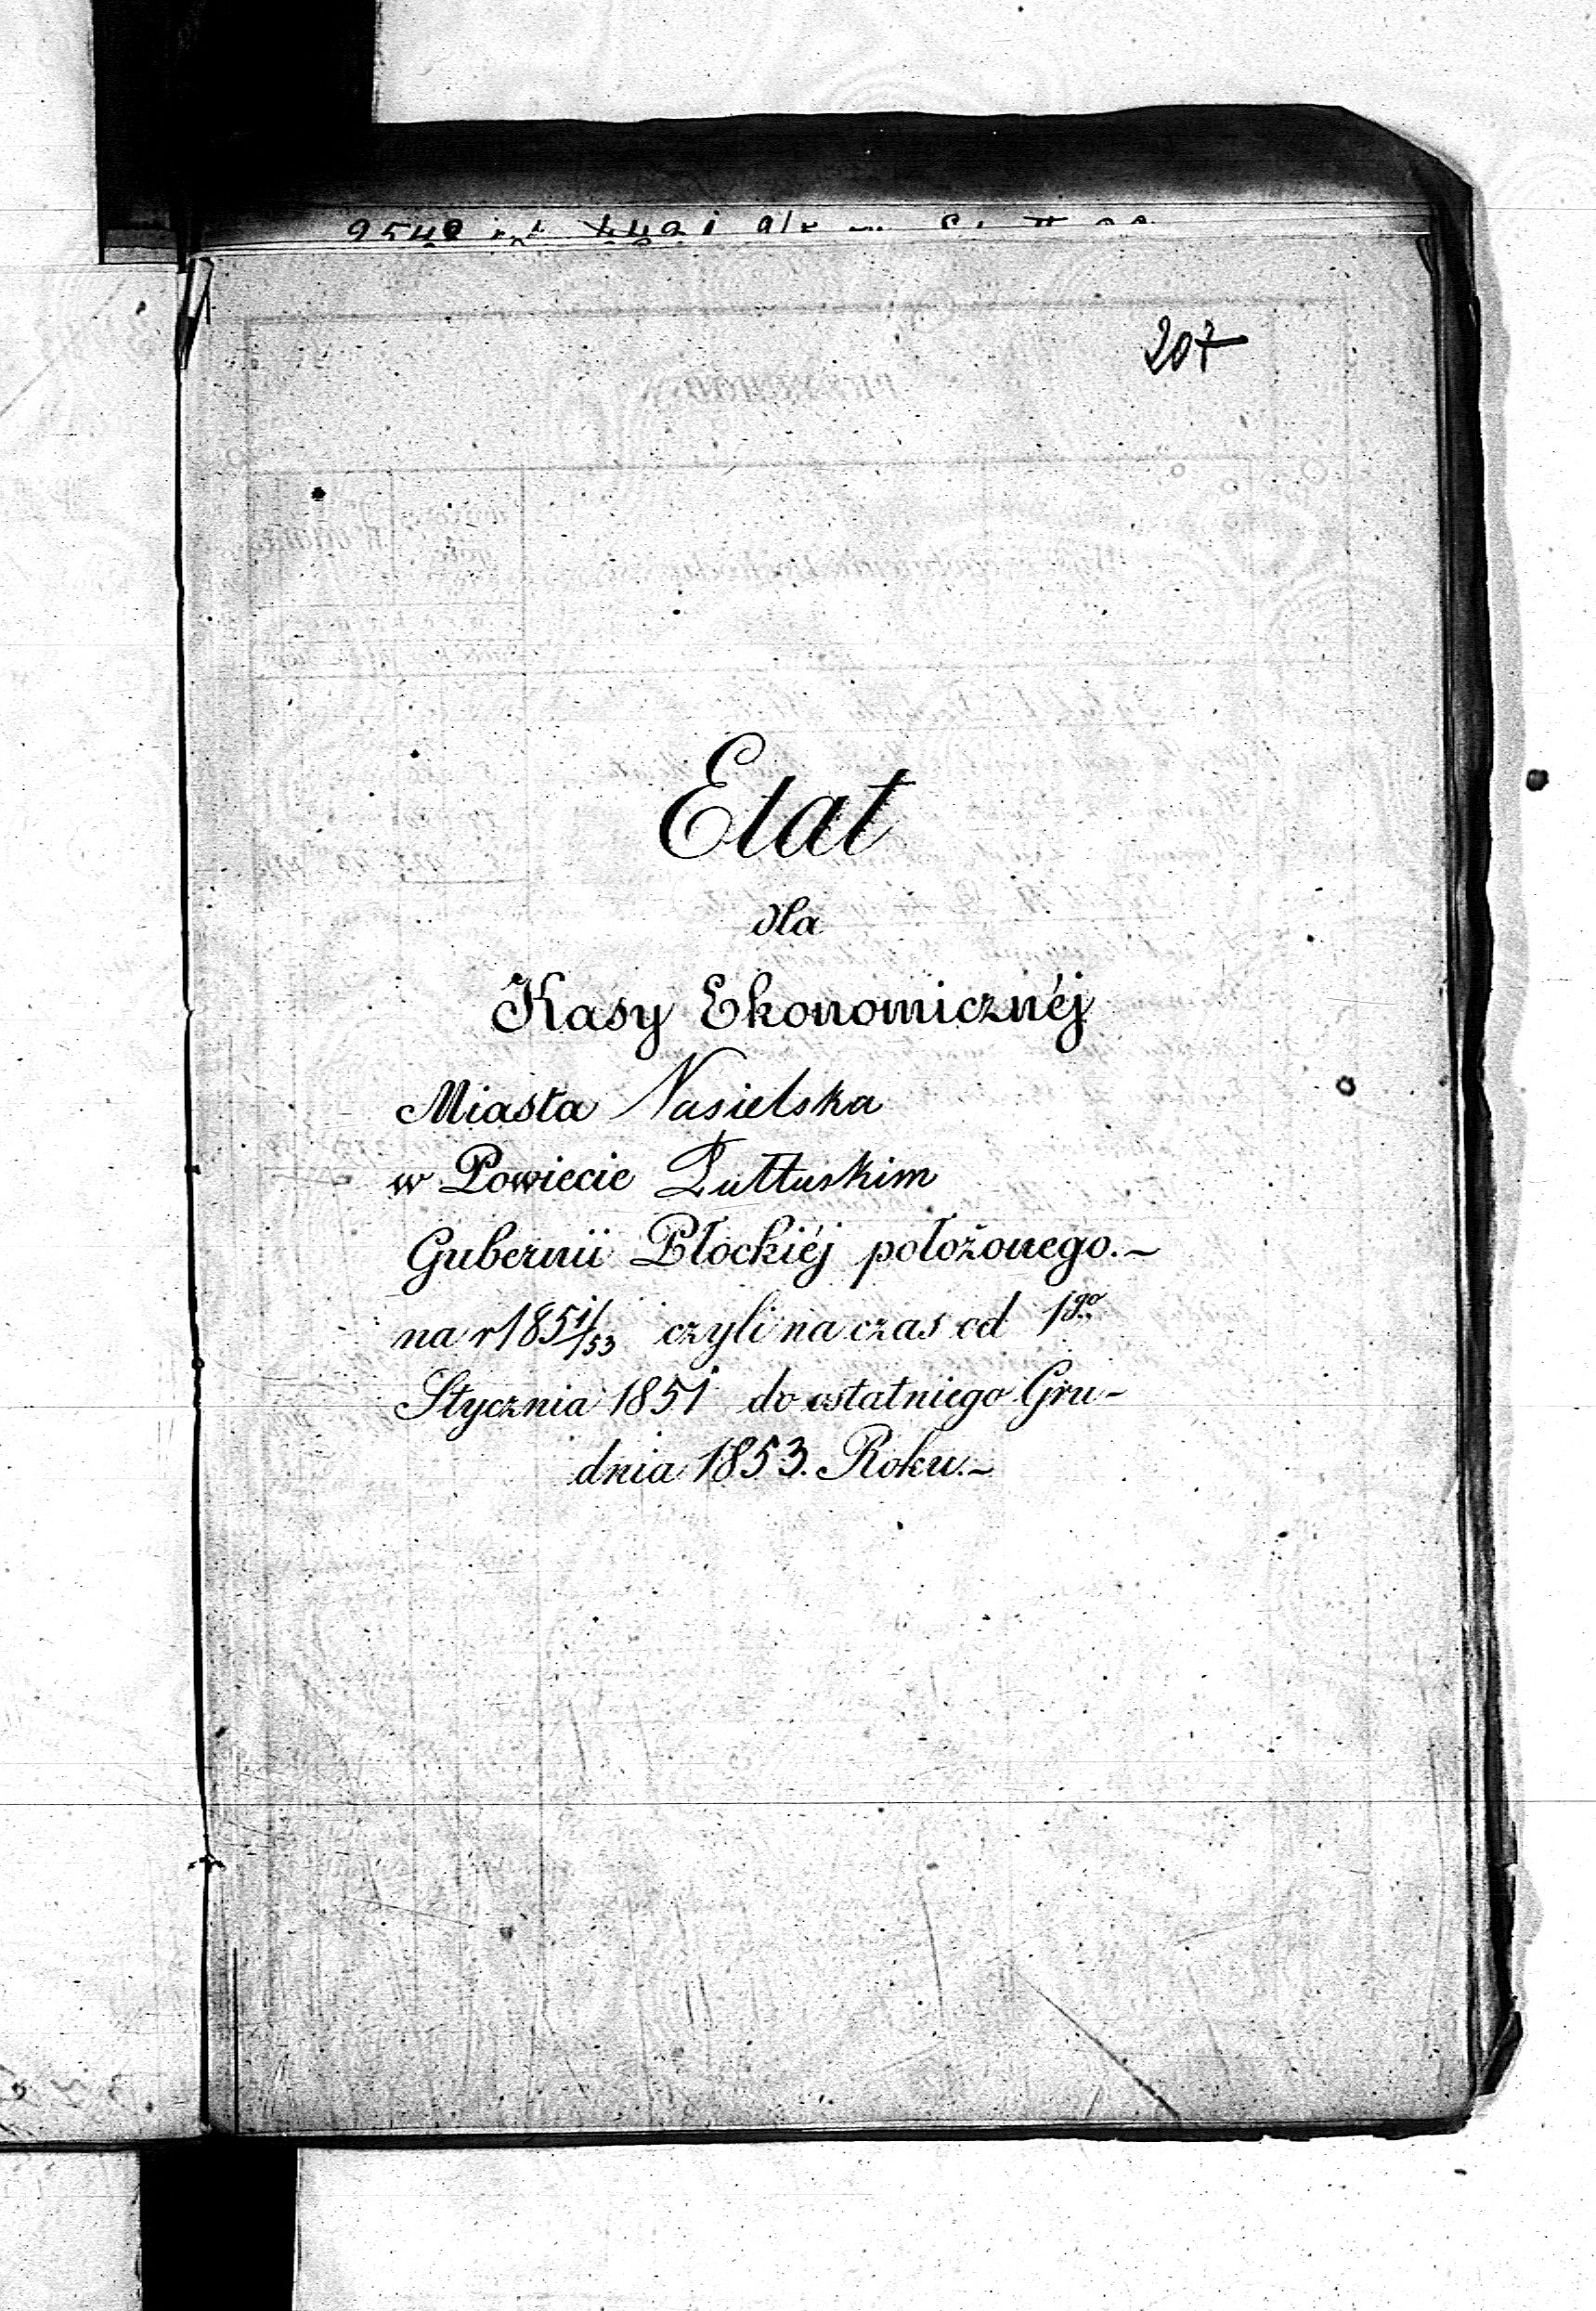 207
Etat
dla
Kasy Ekonomicznéj
Miasta Nasielska
w Powiecie Pułtuskim
Gubernii Płockiéj położonego.~
na r 1851/53 czyli na czas od 1go
Stycznia 1851 do ostatniego Gru-
dnia 1853. Roku.~